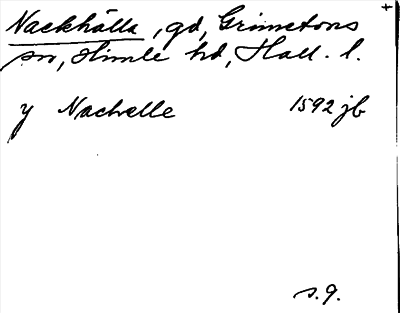 Nackhälla, gd, Grimetons
sn, Himle hd, Hall. l.
y Nachelle 1592 jb
s. 9.